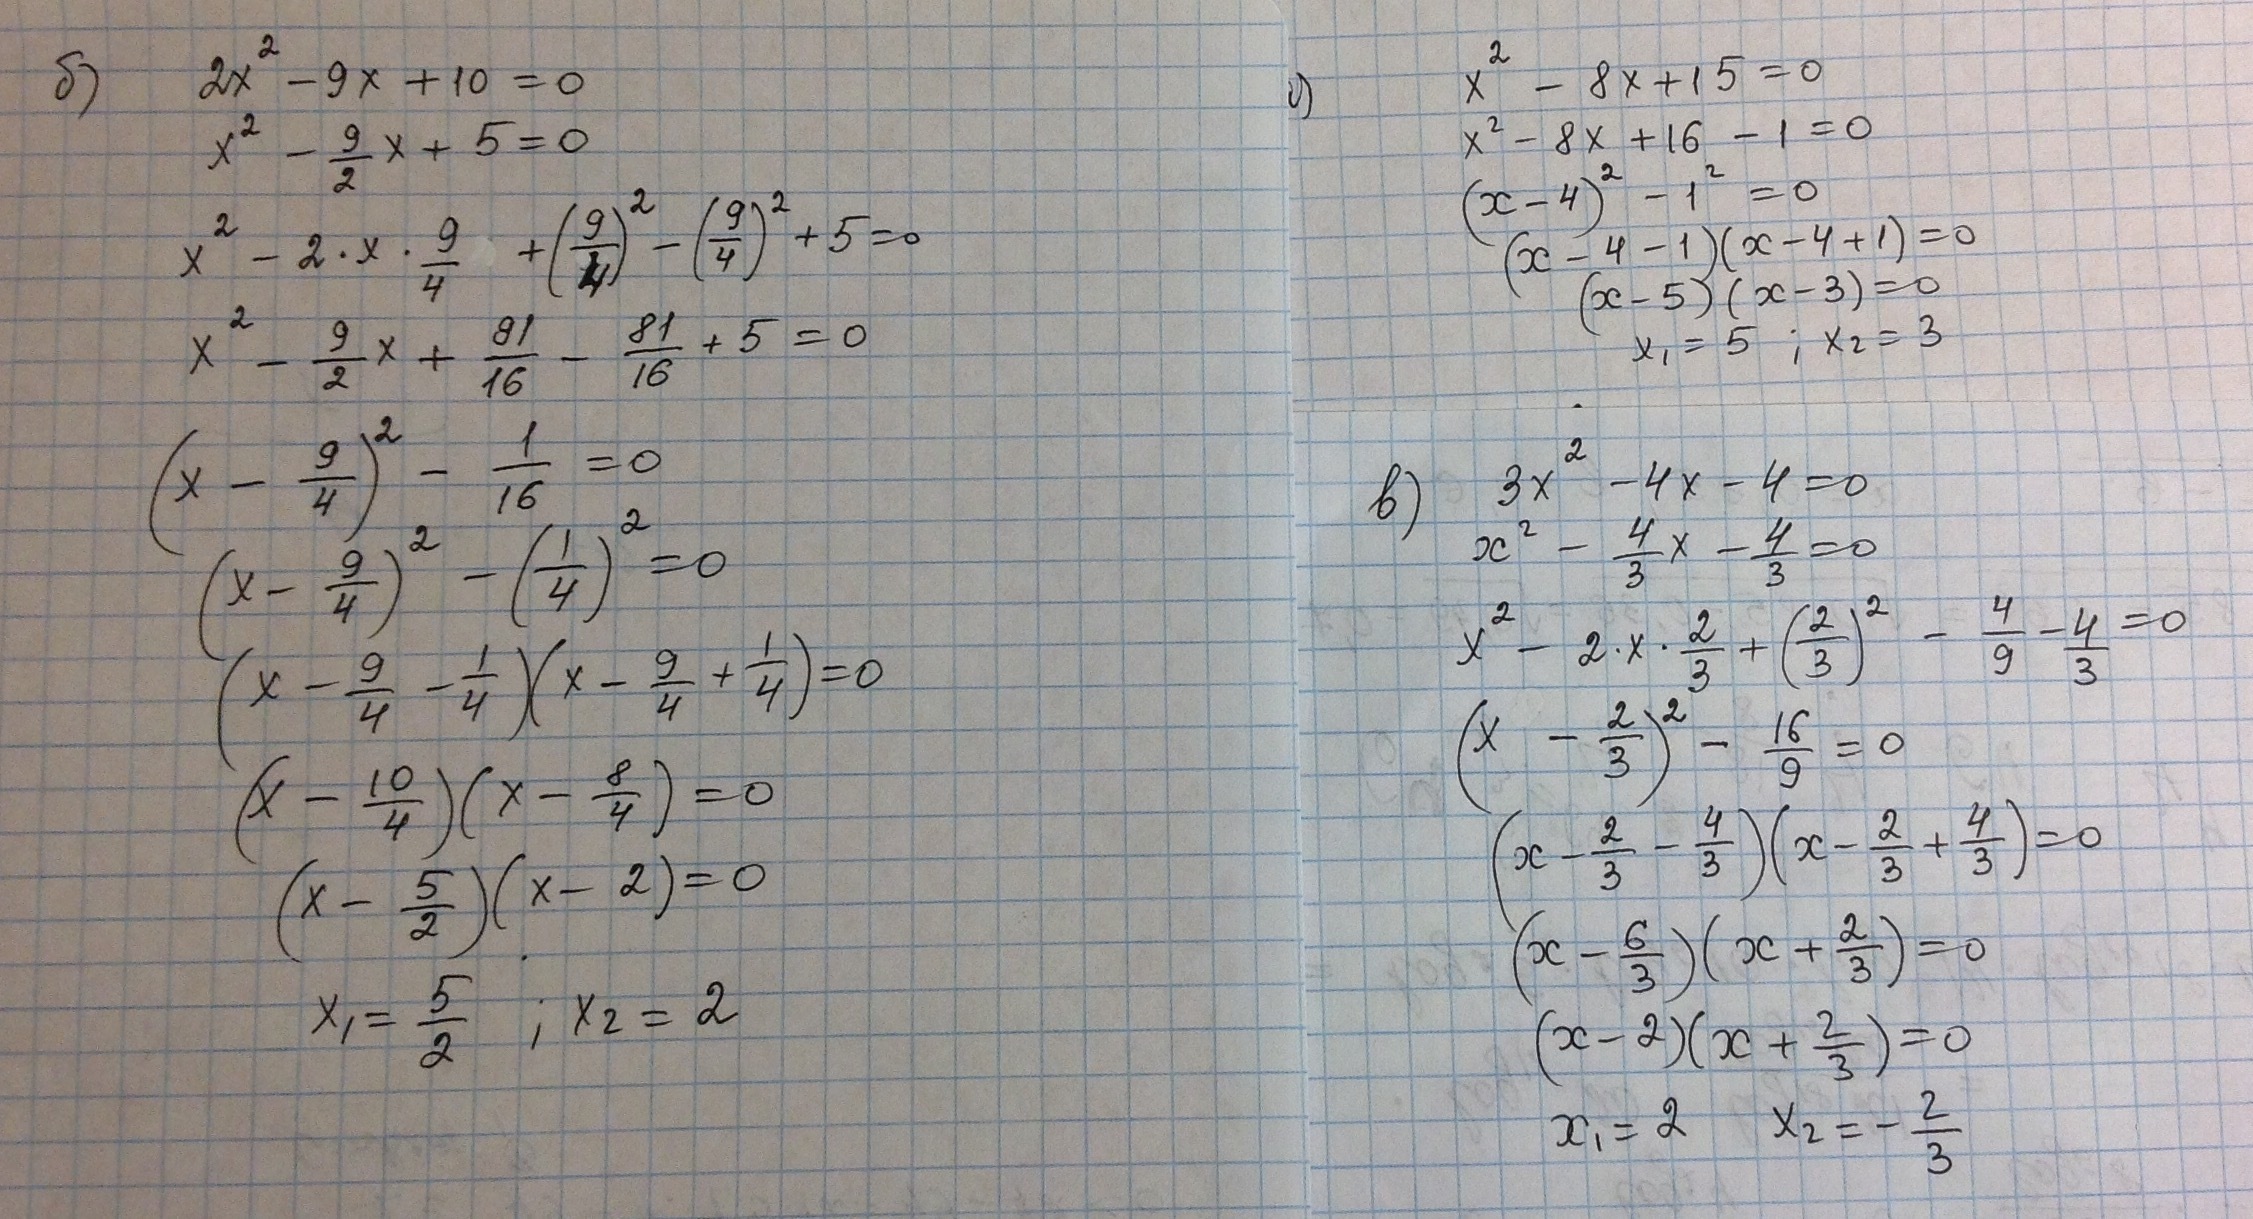 б) 2x² − 9x + 10 = 0
x² − 9/2 x + 5 = 0
x² − 2·x·9/4 + (9/4)² − (9/4)² + 5 = 0
x² − 9/2 x + 81/16 − 81/16 + 5 = 0
(x − 9/4)² − 1/16 = 0
(x − 9/4)² − (1/4)² = 0
(x − 9/4 − 1/4)(x − 9/4 + 1/4) = 0
(x − 10/4)(x − 8/4) = 0
(x − 5/2)(x − 2) = 0
x₁ = 5/2 ; x₂ = 2
x² − 8x + 15 = 0
x² − 8x + 16 − 1 = 0
(x − 4)² − 1² = 0
(x − 4 − 1)(x − 4 + 1) = 0
(x − 5)(x − 3) = 0
x₁ = 5 ; x₂ = 3
в) 3x² − 4x − 4 = 0
x² − 4/3 x − 4/3 = 0
x² − 2·x·2/3 + (2/3)² − 4/9 − 4/3 = 0
(x − 2/3)² − 16/9 = 0
(x − 2/3 − 4/3)(x − 2/3 + 4/3) = 0
(x − 6/3)(x + 2/3) = 0
(x − 2)(x + 2/3) = 0
x₁ = 2 x₂ = −2/3